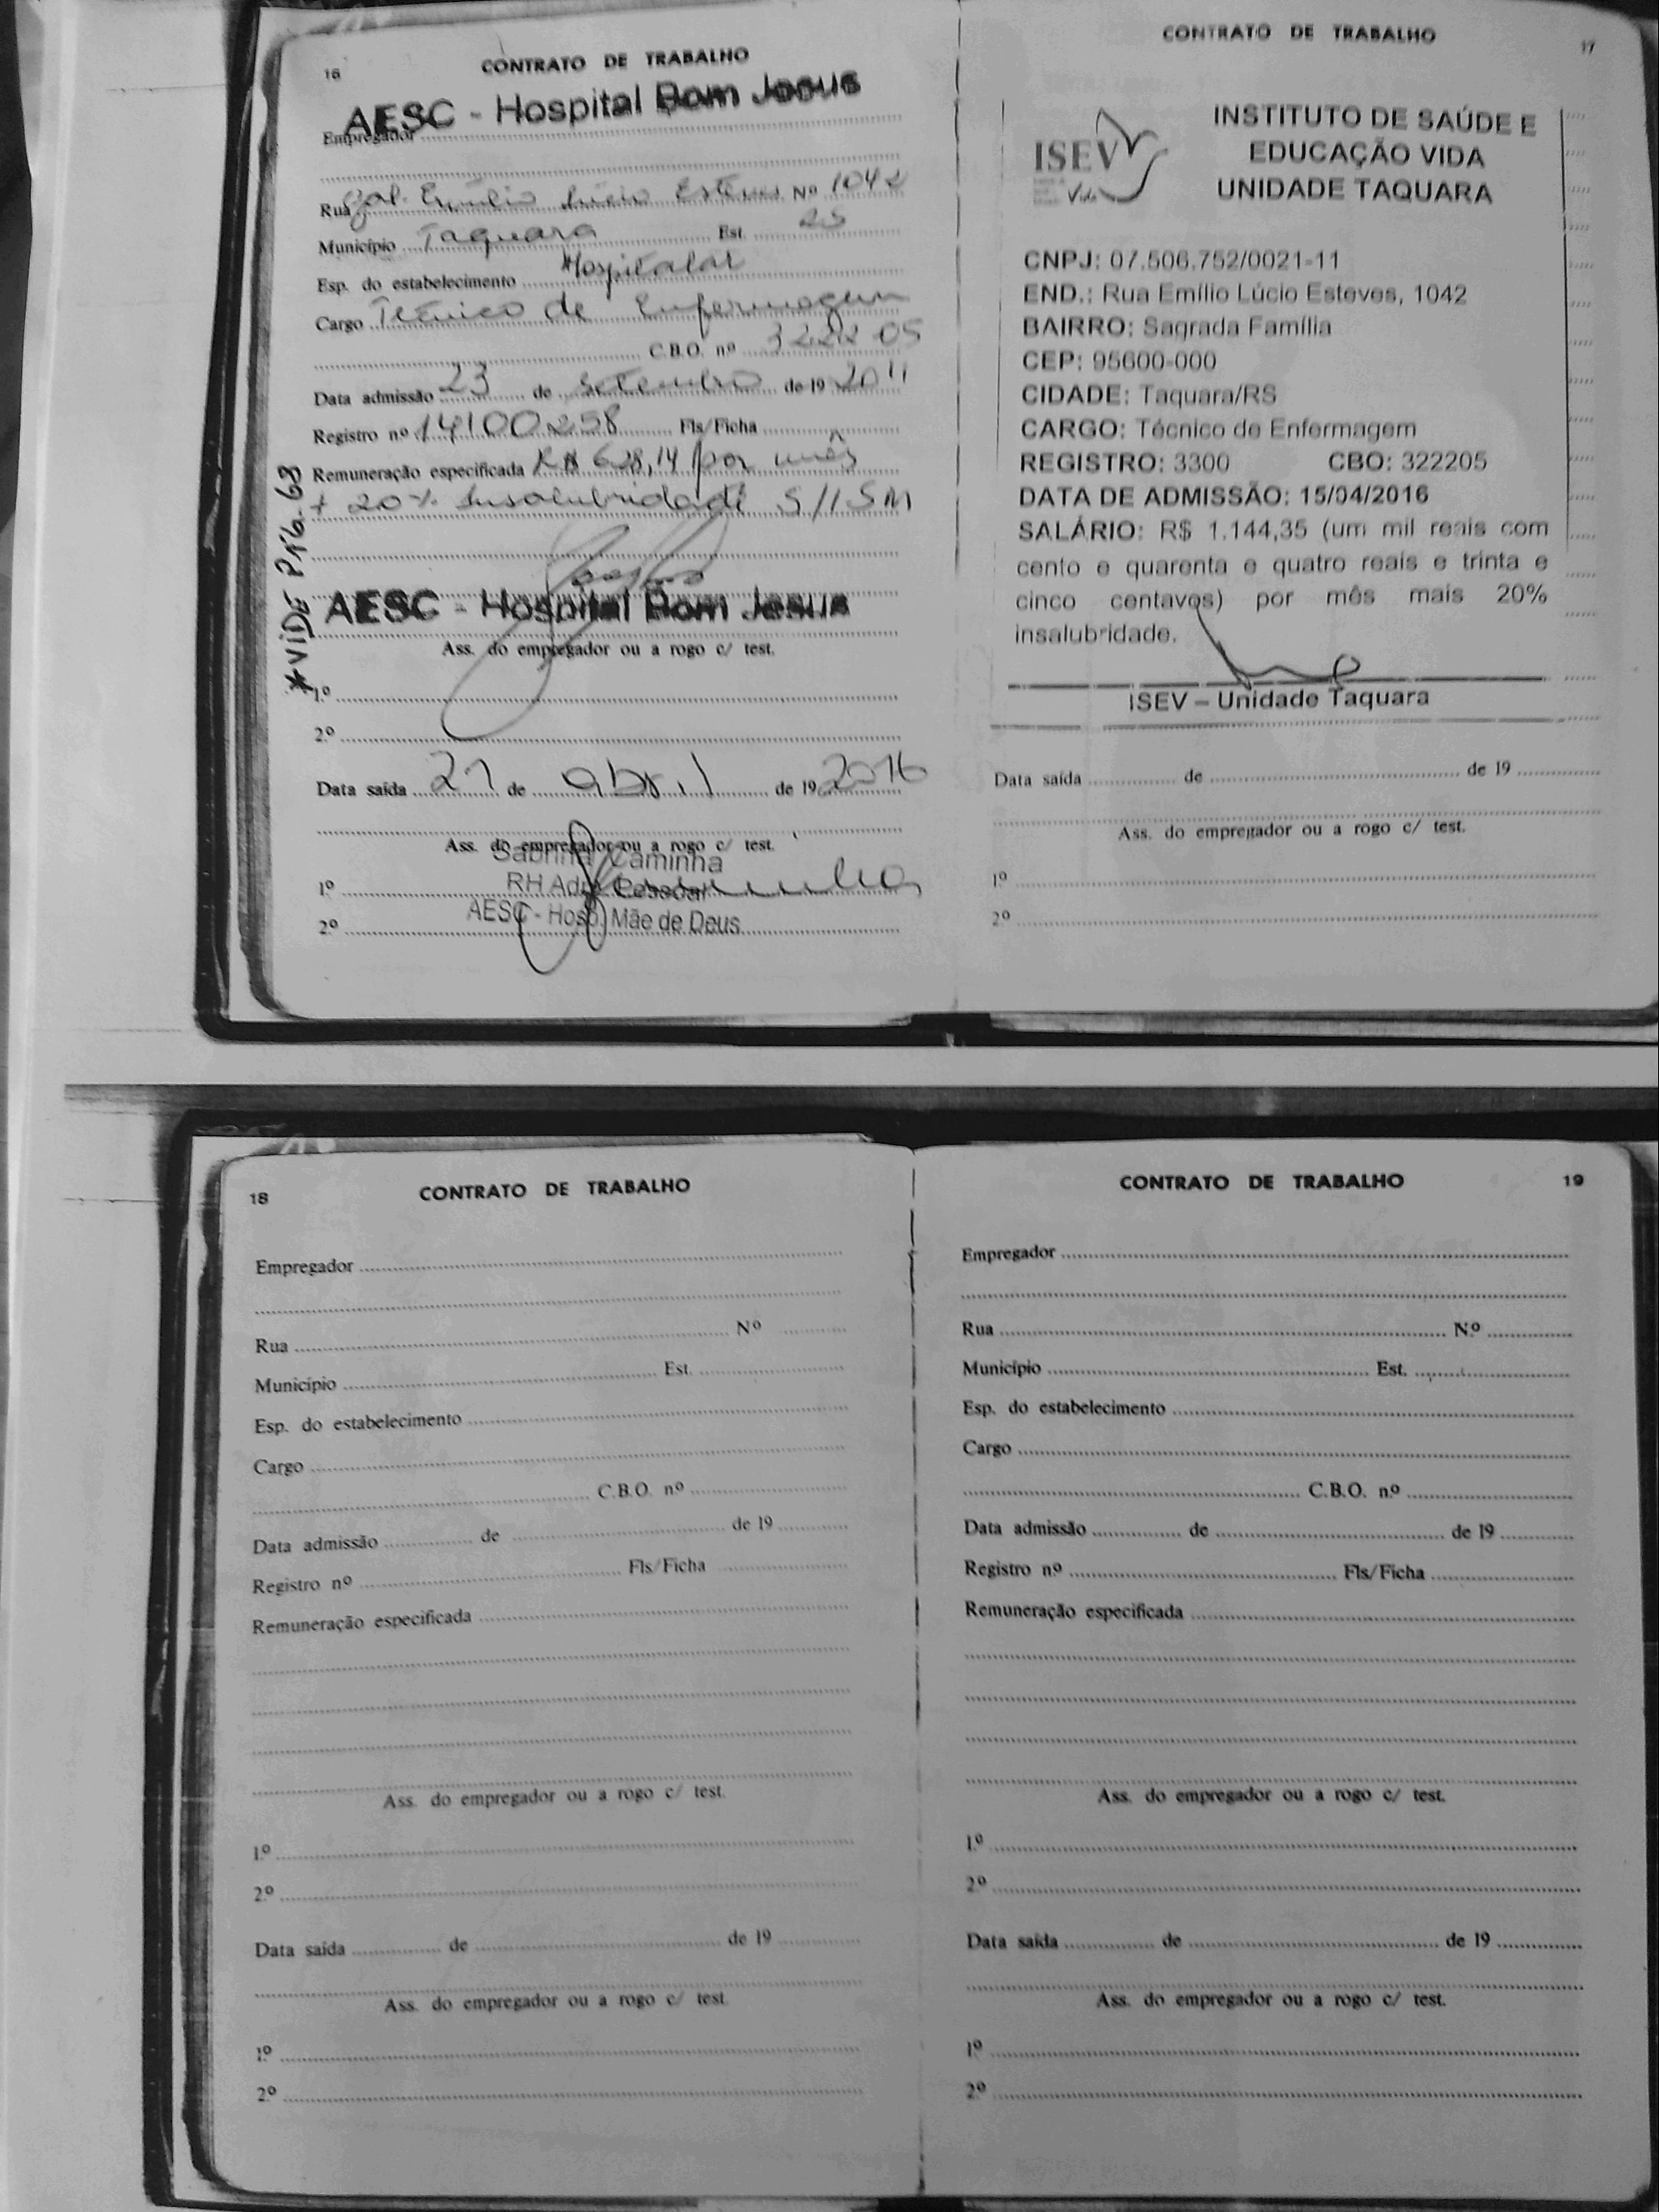 16
CONTRATO DE TRABALHO
AESC - Hospital Bom Jesus
Empregador
Rua Gal. Emílio Lúcio Esteves Nº 1042
Município Taquara Est. RS
Esp. do estabelecimento Hospitalar
Cargo Técnico de Enfermagem
C.B.O. nº 3222-05
Data admissão 23 de Setembro de 19 2011
Registro nº 14100258 Fls/Ficha
Remuneração especificada R$ 628,14 por mês
+ 20% Insalubridade S/ISM
*VIDE PÁG. 63
AESC - Hospital Bom Jesus
Ass. do empregador ou a rogo c/ test.
1º
2º
Data saída 21 de abril de 19 2016
Ass. do empregador ou a rogo c/ test.
Sabrina Caminha
1º RH Adm. Pessoal
AESC - Hosp. Mãe de Deus
2º
CONTRATO DE TRABALHO
17
ISEV
Vida
INSTITUTO DE SAÚDE E
EDUCAÇÃO VIDA
UNIDADE TAQUARA
CNPJ: 07.506.752/0021-11
END.: Rua Emílio Lúcio Esteves, 1042
BAIRRO: Sagrada Família
CEP: 95600-000
CIDADE: Taquara/RS
CARGO: Técnico de Enfermagem
REGISTRO: 3300 CBO: 322205
DATA DE ADMISSÃO: 15/04/2016
SALÁRIO: R$ 1.144,35 (um mil reais com
cento e quarenta e quatro reais e trinta e
cinco centavos) por mês mais 20%
insalubridade.
ISEV – Unidade Taquara
Data saída de de 19
Ass. do empregador ou a rogo c/ test.
1º
2º
18
CONTRATO DE TRABALHO
Empregador
Rua Nº
Município Est.
Esp. do estabelecimento
Cargo
C.B.O. nº
Data admissão de de 19
Registro nº Fls/Ficha
Remuneração especificada
Ass. do empregador ou a rogo c/ test.
1º
2º
Data saída de de 19
Ass. do empregador ou a rogo c/ test.
1º
2º
CONTRATO DE TRABALHO
19
Empregador
Rua Nº
Município Est.
Esp. do estabelecimento
Cargo
C.B.O. nº
Data admissão de de 19
Registro nº Fls/Ficha
Remuneração especificada
Ass. do empregador ou a rogo c/ test.
1º
2º
Data saída de de 19
Ass. do empregador ou a rogo c/ test.
1º
2º